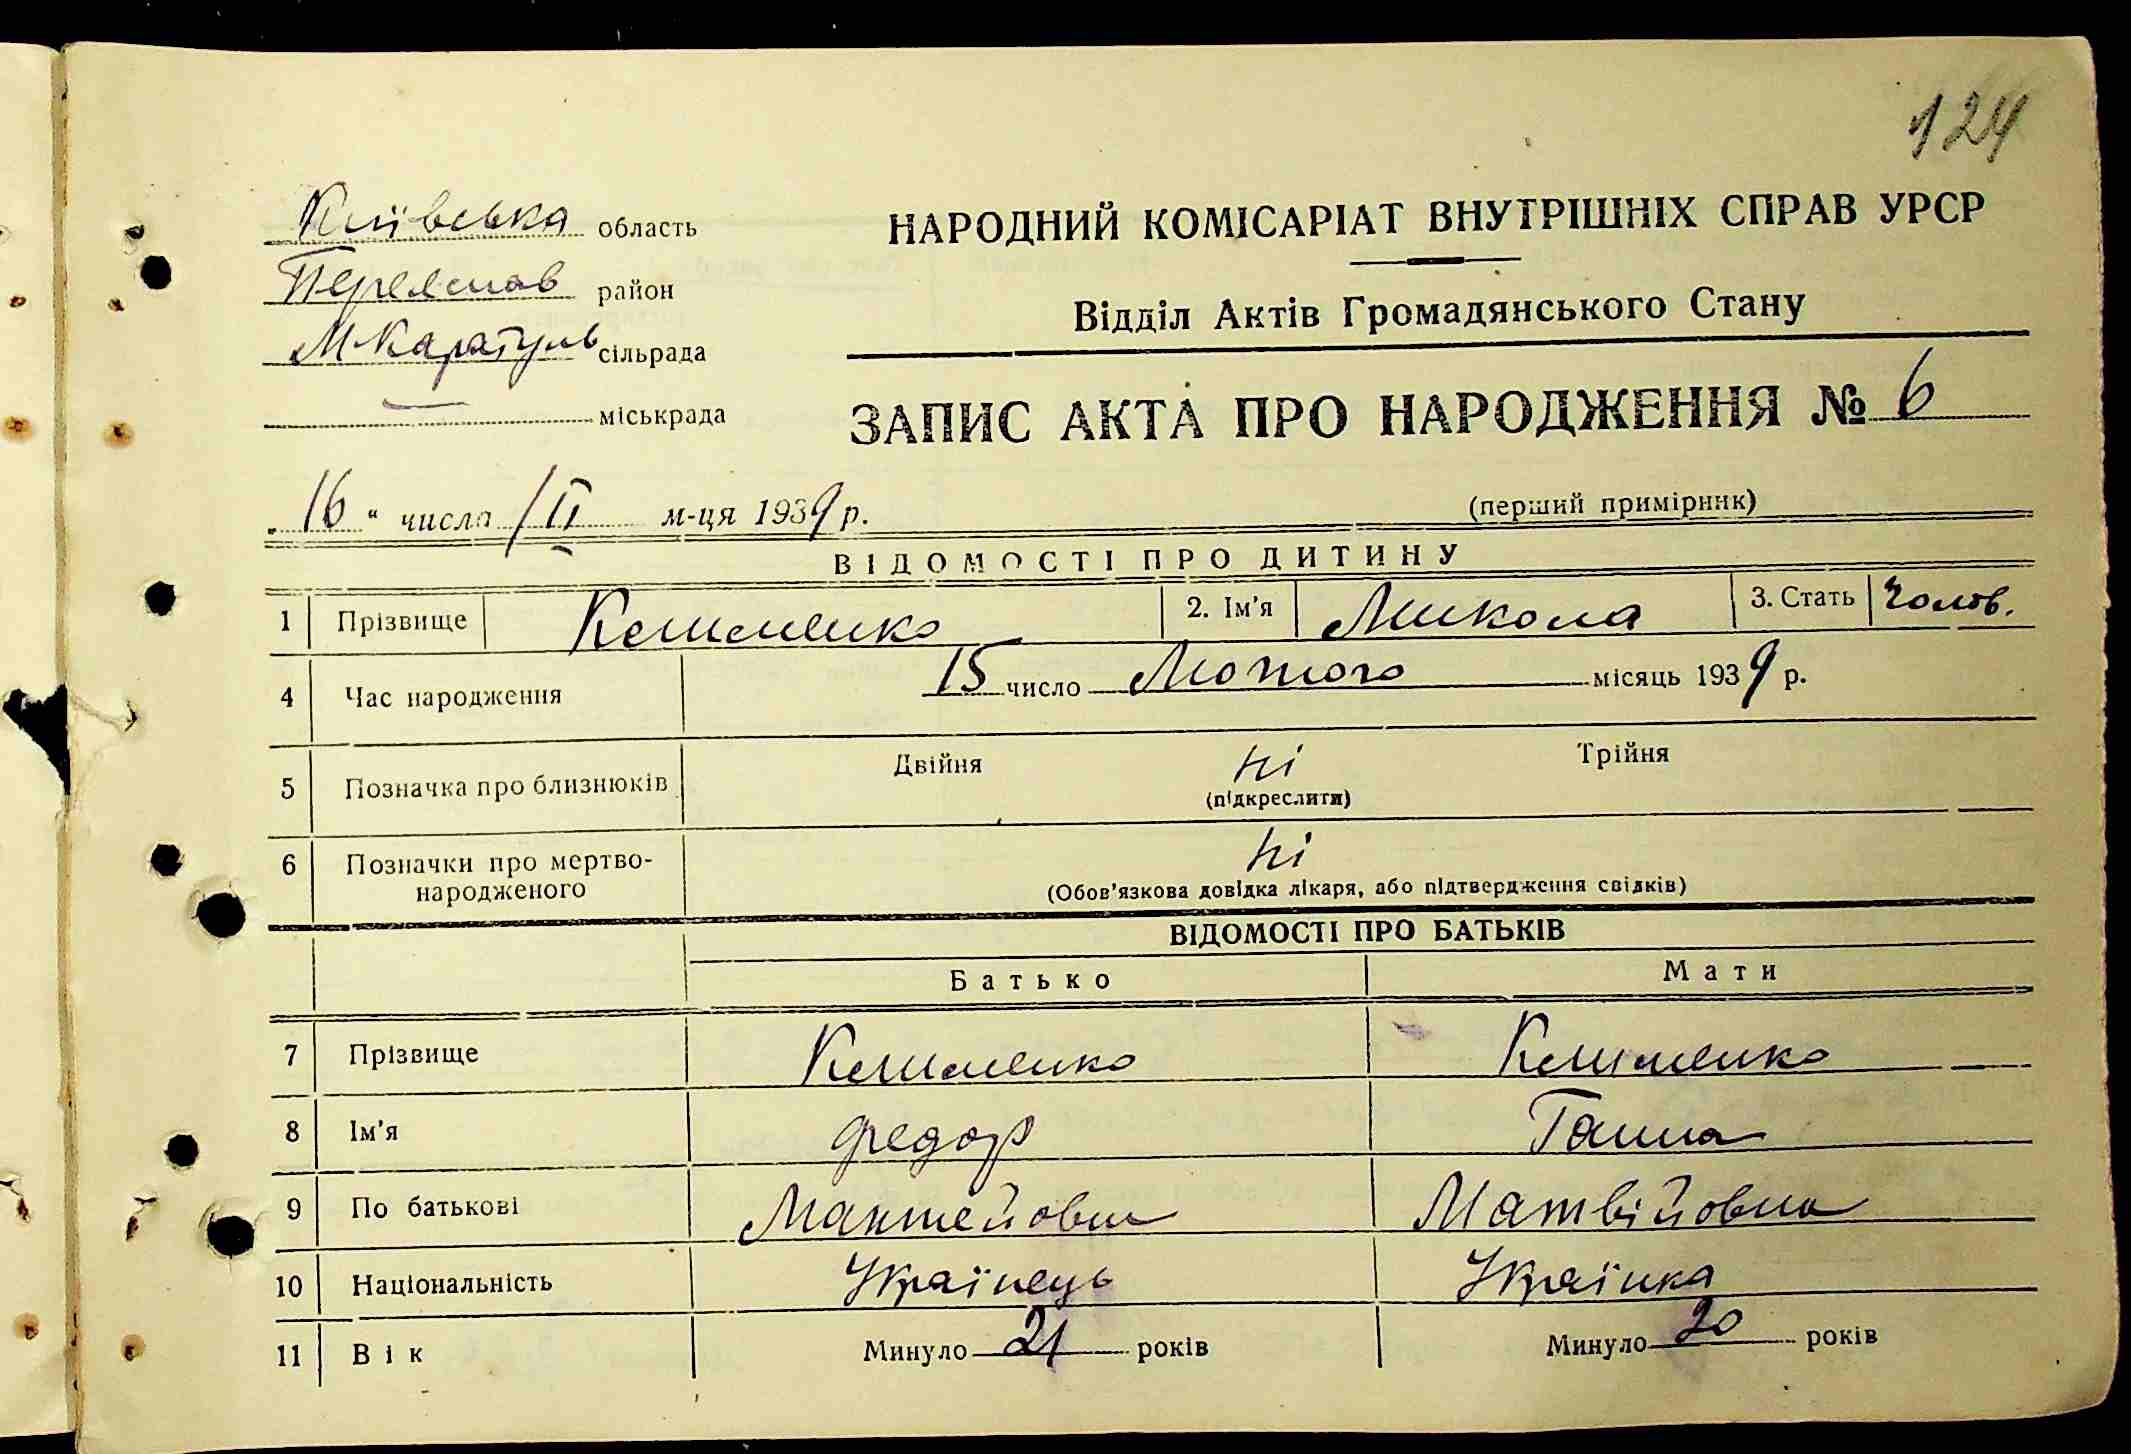 124
Київська область
НАРОДНИЙ КОМІСАРІАТ ВНУТРІШНІХ СПРАВ УРСР
Переяслав район
Відділ Актів Громадянського Стану
М Каратуль сільрада
міськрада
ЗАПИС АКТА ПРО НАРОДЖЕННЯ № 6
„16“ числа II м-ця 1939 р.
(перший примірник)
ВІДОМОСТІ ПРО ДИТИНУ
1 Прізвище Клименко 2. Ім'я Микола 3. Стать Чолов.
4 Час народження 15 число Лютого місяць 1939 р.
5 Позначка про близнюків Двійня ні Трійня
(підкреслити)
6 Позначки про мертво-
народженого ні
(Обов'язкова довідка лікаря, або підтвердження свідків)
ВІДОМОСТІ ПРО БАТЬКІВ
Батько Мати
7 Прізвище Клименко Клименко
8 Ім'я Федор Ганна
9 По батькові Матвійовна
10 Національність Українець Українка
11 Вік Минуло 21 років Минуло 20 років